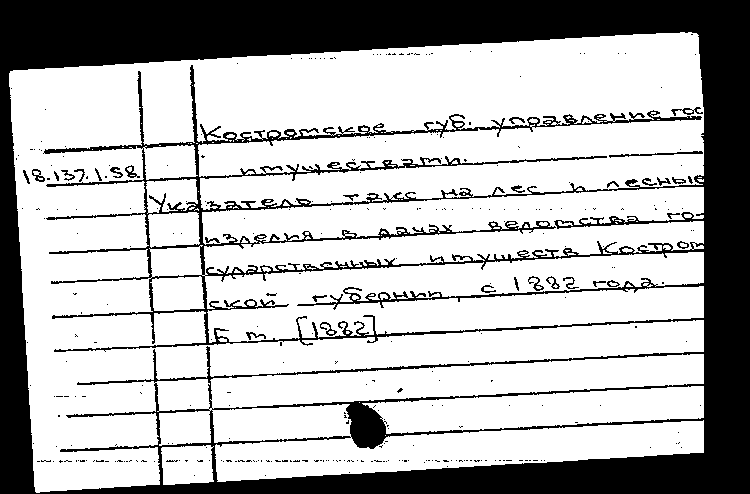 Костромское губ. управление гос
имуществами.
18.137.1.58
Указатель такс на лес и лесные
изделия в дачах ведомства го-
сударственных имуществ Костром
ской губернии, с 1882 года.
Б. м., [1882].